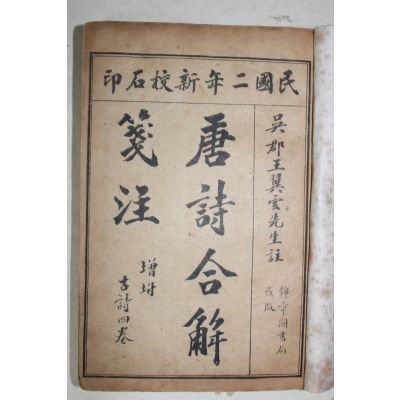 民國二年新校石印
吳郡王翼雲先生註
唐詩合解
箋注
增坿
古詩四卷
錦章圖書局